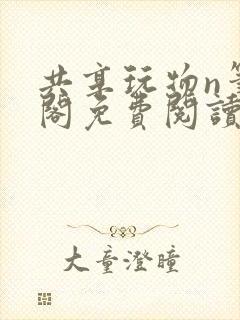 共享玩物n筆
閣免費閱讀
大童澄瞳